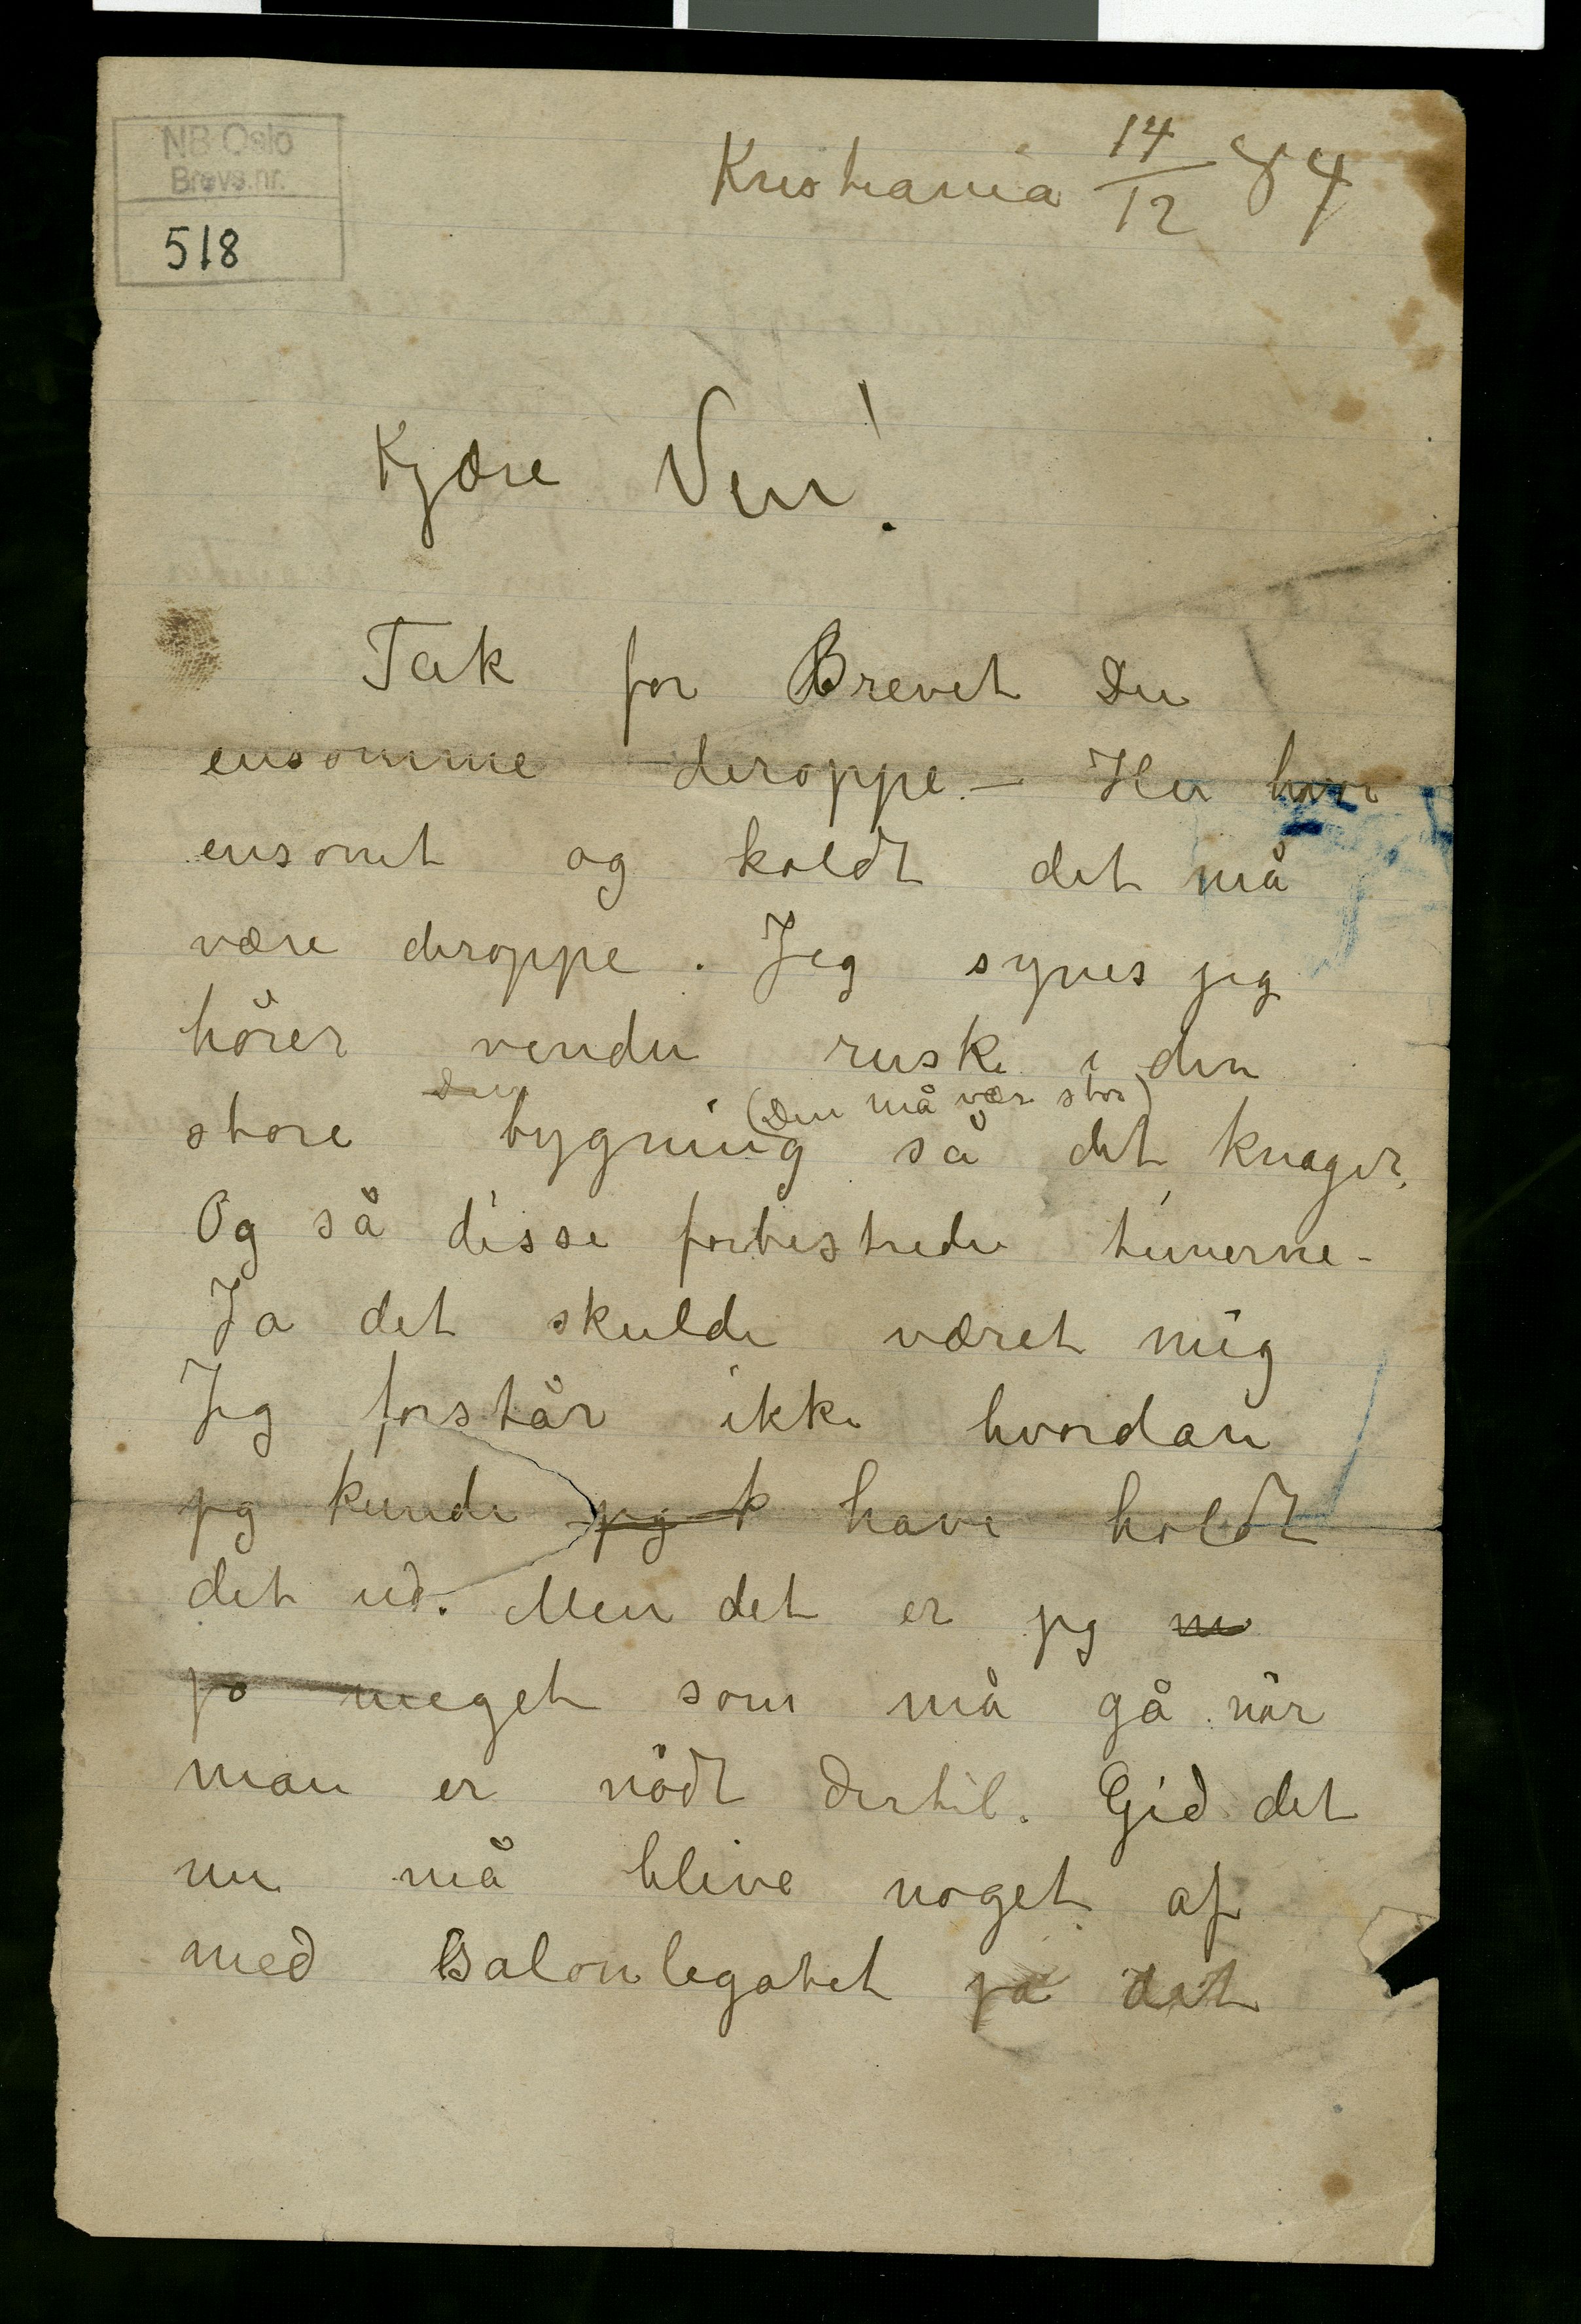 NB Oslo
Brevs.nr.
518
Kristiania 14/12 84
Kjære Ven!
Tak for Brevet Du
ensomme deroppe. – Hu hvor
ensomt og koldt det må
være deroppe. Jeg synes jeg
hörer vinden ruske i den
store bygning (Den må være stor) så det knager.
Og så disse forbistrede timerne –
Ja det skulde været mig
Jeg forstår ikke hvordan
jeg kunde jeg k have holdt
det ud. Men det er jeg m
jo meget som må gå når
man er nödt dertil. Gid det
nu må blive noget af
med Salonlegatet ja det